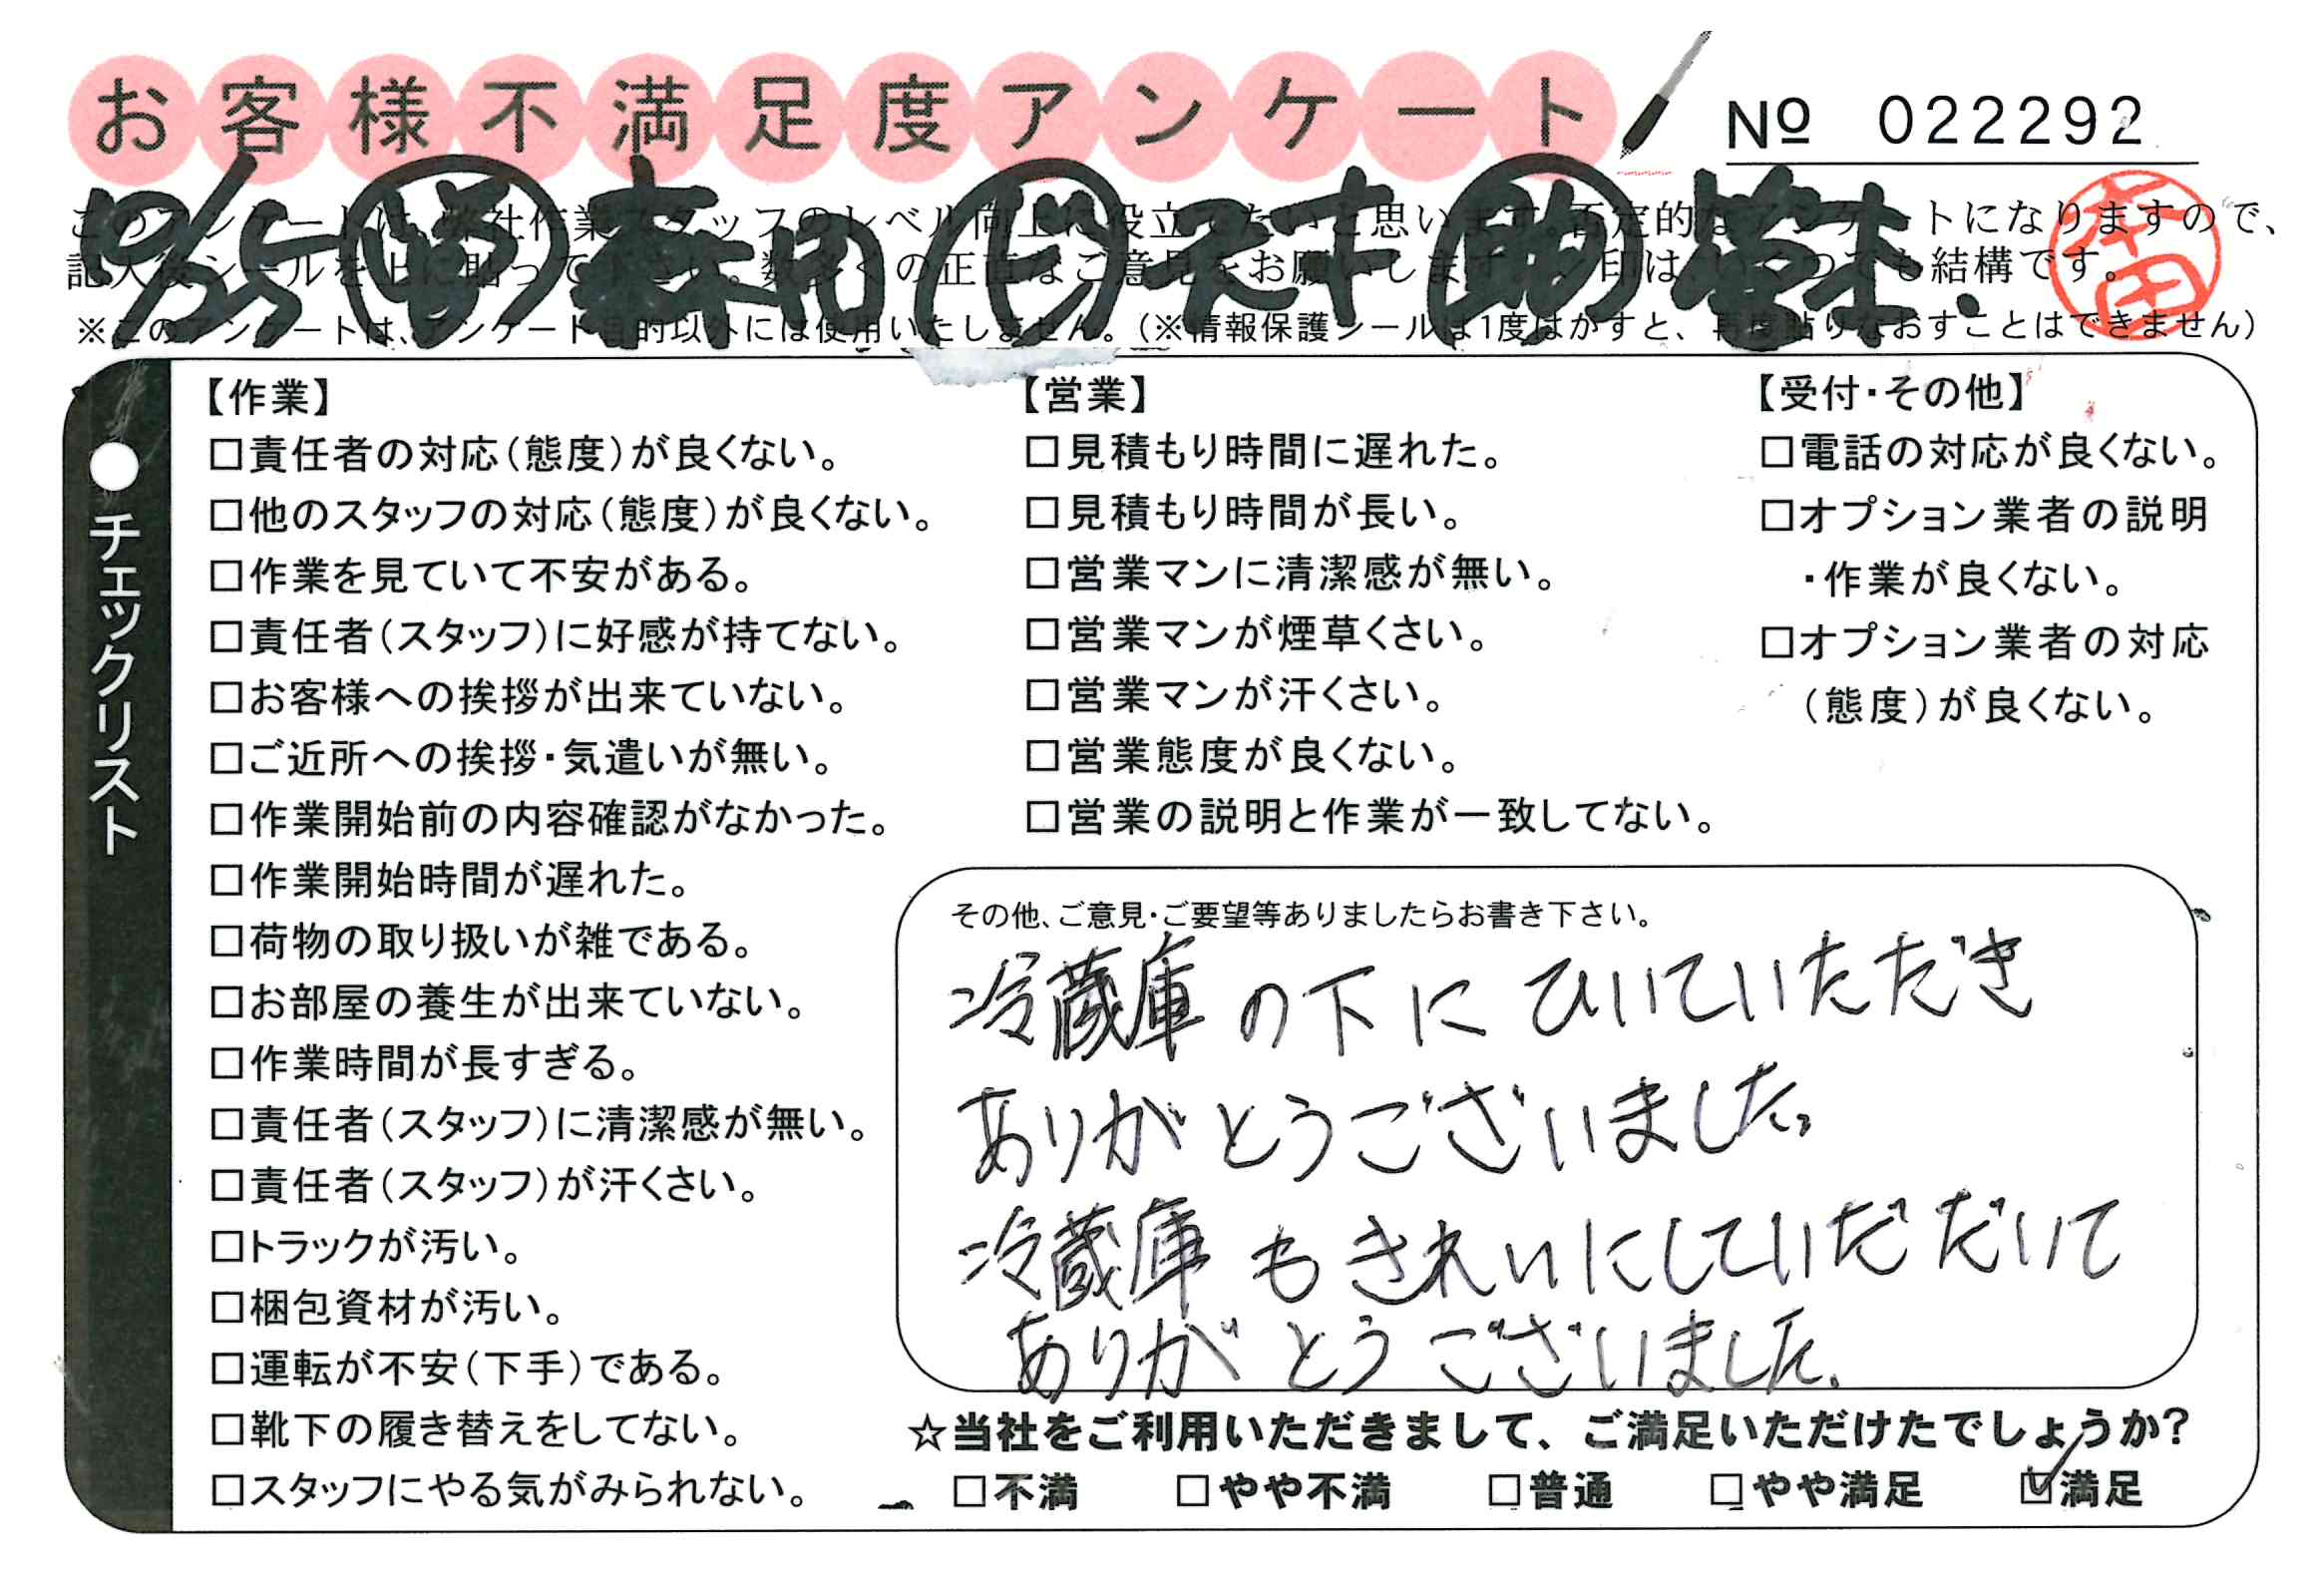 お客様不満足度アンケート
№ 022292
10/25
このアンケートは、弊社作業スタッフのレベル向上に役立てたいと思います。否定的なアンケートになりますので、
記入後シールを上に貼って の正直なご意見をお願いします も結構です。
※このアンケートは、アンケート目的以外には使用いたしません。（※情報保護シールは1度はがすと、再度貼りなおすことはできません）
本田
●チェックリスト
【作業】
□責任者の対応（態度）が良くない。
□他のスタッフの対応（態度）が良くない。
□作業を見ていて不安がある。
□責任者（スタッフ）に好感が持てない。
□お客様への挨拶が出来ていない。
□ご近所への挨拶・気遣いが無い。
□作業開始前の内容確認がなかった。
□作業開始時間が遅れた。
□荷物の取り扱いが雑である。
□お部屋の養生が出来ていない。
□作業時間が長すぎる。
□責任者（スタッフ）に清潔感が無い。
□責任者（スタッフ）が汗くさい。
□トラックが汚い。
□梱包資材が汚い。
□運転が不安（下手）である。
□靴下の履き替えをしてない。
□スタッフにやる気がみられない。
【営業】
□見積もり時間に遅れた。
□見積もり時間が長い。
□営業マンに清潔感が無い。
□営業マンが煙草くさい。
□営業マンが汗くさい。
□営業態度が良くない。
□営業の説明と作業が一致してない。
【受付・その他】
□電話の対応が良くない。
□オプション業者の説明
・作業が良くない。
□オプション業者の対応
（態度）が良くない。
その他、ご意見・ご要望等ありましたらお書き下さい。
冷蔵庫の下にひいていただき
ありがとうございました。
冷蔵庫もきれいにしていだだいて
ありがとうございました。
☆当社をご利用いただきまして、ご満足いただけたでしょうか？
□不満 □やや不満 □普通 □やや満足 ☑満足